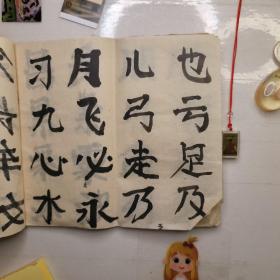 也亏足及
儿弓走乃
月飞必永
习九心水